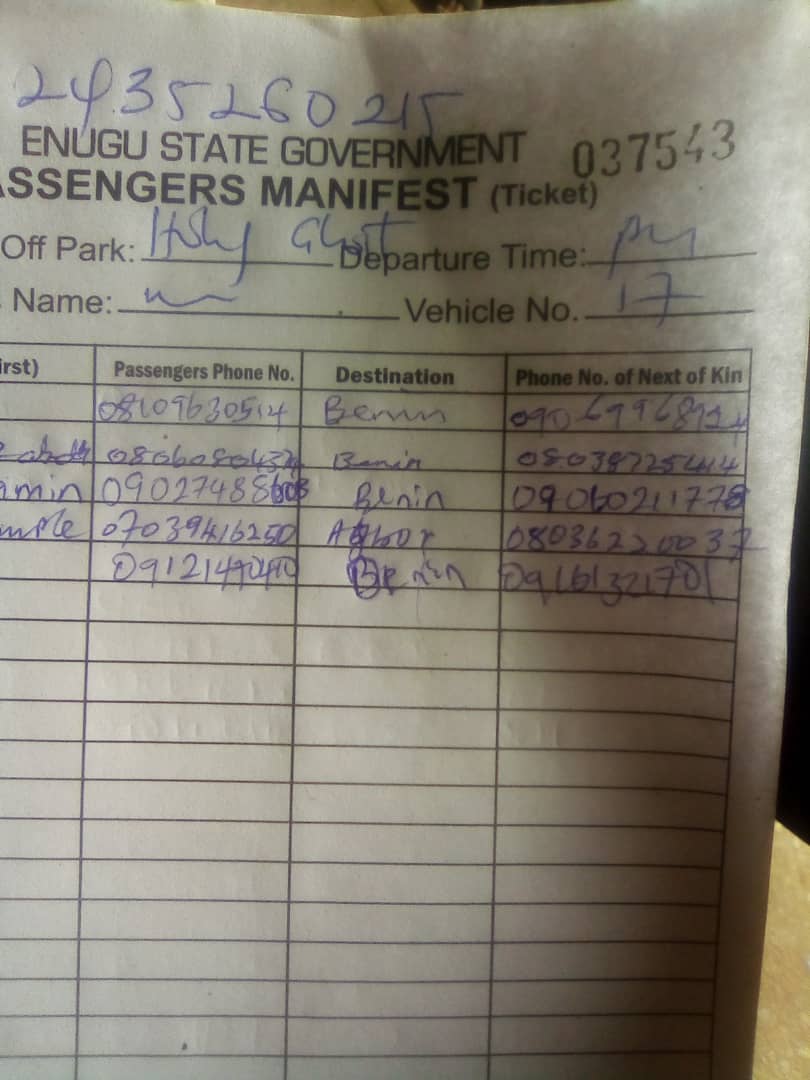 2435260215
ENUGU STATE GOVERNMENT 037543
ASSENGERS MANIFEST (Ticket)
Off Park: Holy Ghost Departure Time:
Name: Vehicle No. 17
irst) Passengers Phone No. Destination Phone No. of Next of Kin
08109630514 Benin
Benin 08038725414
amin 09027488608 Benin 09060211778
mple 07039416250 Agbor 08036220037
Benin 09161321701